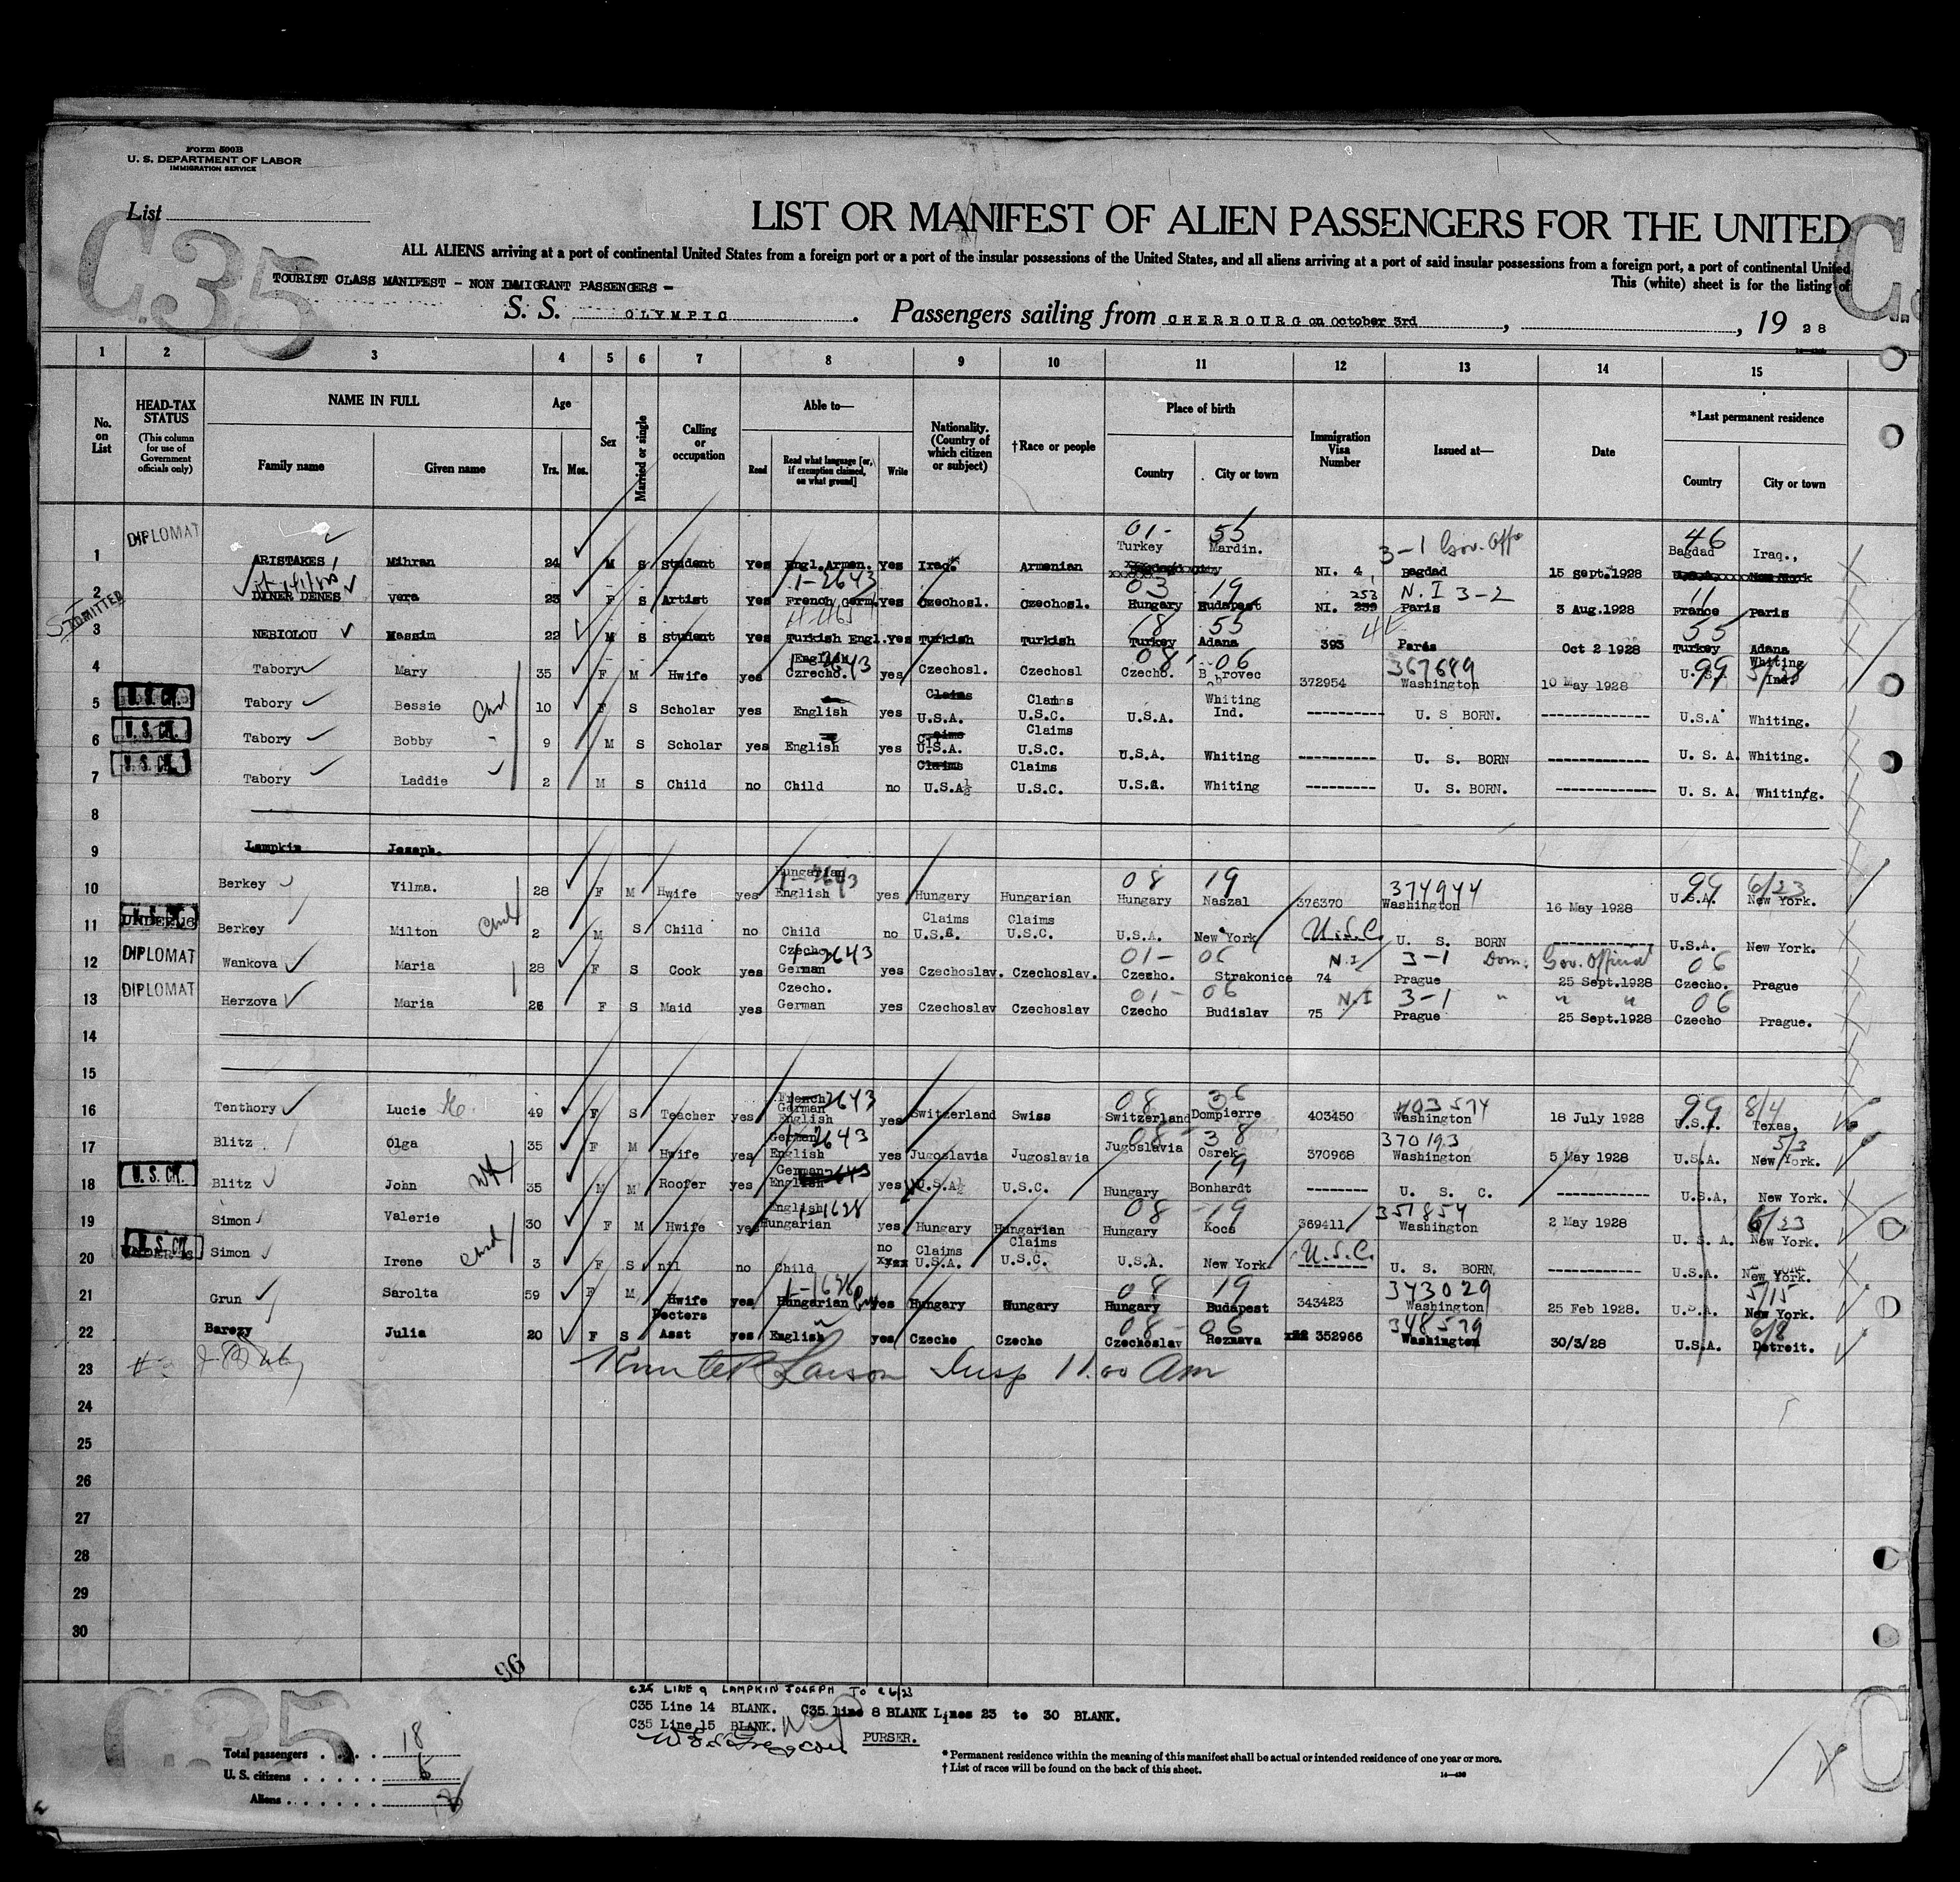 Form 500B
U. S. DEPARTMENT OF LABOR
IMMIGRATION SERVICE
List
C.35
LIST OR MANIFEST OF ALIEN PASSENGERS FOR THE UNITED
ALL ALIENS arriving at a port of continental United States from a foreign port or a port of the insular possessions of the United States, and all aliens arriving at a port of said insular possessions from a foreign port, a port of continental United
TOURIST CLASS MANIFEST - NON IMMIGRANT PASSENGERS - This (white) sheet is for the listing of
S. S. OLYMPIC. Passengers sailing from CHERBOURG on October 3rd, , 19 28
1 2 3 4 5 6 7 8 9 10 11 12 13 14 15
No. on List
HEAD-TAX STATUS (This column for use of Government officials only)
NAME IN FULL Family name Given name
Age Yrs. Mos.
Sex
Married or single
Calling or occupation
Able to— Read Read what language [or, if exemption claimed, on what ground] Write
Nationality. (Country of which citizen or subject)
†Race or people
Place of birth Country City or town
Immigration Visa Number
Issued at—
Date
*Last permanent residence Country City or town
DIPLOMAT 01- 55 3-1 Gov. Off 46
1 ARISTAKES Mihran 24 M S Student Yes Engl.Armen. Yes Iraq. Armenian Turkey Mardin. NI. 4 Bagdad 15 sept.1928 Bagdad Iraq.,
1-2643 03 19 253 N.I 3-2 11
2 DINER DENES Vera 23 F S Artist Yes French Germ. Yes Czechosl. Czechosl. Hungary Budapest NI. 239 Paris 3 Aug.1928 France Paris
ADMITTED 18 55 55
3 NEBIOLOU Massim 22 M S Student Yes Turkish Engl. Yes Turkish Turkish Turkey Adana 393 Paris Oct 2 1928 Turkey Adana
English 2643 08 06 367689 99 Whiting
4 Tabory Mary 35 F M Hwife yes Czrecho. yes Czechosl. Czechosl Czecho. B rovec 372954 Washington 10 May 1928 U.S. Ind.
U. S. CIT. Chd Claims Claims Whiting
5 Tabory Bessie 10 F S Scholar yes English yes U.S.A. U.S.C. U.S.A. Ind. ---------- U. S BORN. -------------- U.S.A Whiting.
U. S. CIT. Claims Claims
6 Tabory Bobby 9 M S Scholar yes English yes U.S.A. U.S.C. U.S.A. Whiting ---------- U. S. BORN -------------- U. S. A. Whiting.
U. S. CIT. Claims Claims
7 Tabory Laddie 2 M S Child no Child no U.S.A. U.S.C. U.S.A. Whiting ---------- U. S. BORN. -------------- U. S. A. Whiting.
8
9 Lampkin Joseph.
Hungarian 2643 08 19 374944 99 6/23
10 Berkey Vilma. 28 F M Hwife yes English yes Hungary Hungarian Hungary Naszal 376370 Washington 16 May 1928 U.S.A. New York.
UNDER 16 Chd Claims Claims U.S.C.
11 Berkey Milton 2 M S Child no Child no U.S.A. U.S.C. U.S.A. New York U. S. BORN -------------- U.S.A. New York.
DIPLOMAT Czecho. 2643 01- 06 N.I 3-1 Dom. Gov. Official 06
12 Wankova Maria 28 F S Cook yes German yes Czechoslav. Czechoslav. Czecho. Strakonice 74 Prague 25 Sept.1928 Czecho. Prague
DIPLOMAT Czecho. 01- 06 N.I 3-1 " " " 06
13 Herzova Maria 26 F S Maid yes German yes Czechoslav Czechoslav Czecho Budislav 75 Prague 25 Sept.1928 Czecho Prague.
14
15
French German 2643 08 36 403574 99 8/4
16 Tenthory Lucie 49 F S Teacher yes English yes Switzerland Swiss Switzerland Dompierre 403450 Washington 18 July 1928 U.S.A. Texas.
German 2643 08 38 370193 5/3
17 Blitz Olga 35 F M Hwife yes English yes Jugoslavia Jugoslavia Jugoslavia Osrek 370968 Washington 5 May 1928 U.S.A. New York.
U. S. CIT. German 19
18 Blitz John 35 M M Roofer yes English yes U.S.A. U.S.C. Hungary Bonhardt -------- U. S. C. ------------ U.S.A, New York.
English 1-1628 08 19 357854 6/23
19 Simon Valerie 30 F M Hwife yes Hungarian yes Hungary Hungarian Hungary Kocs 369411 Washington 2 May 1928 U. S. A. New York.
U. S. CIT. Chd no Claims Claims U.S.C.
20 Simon Irene 3 F S nil no Child U.S.A. U.S.C. U.S.A. New York -------- U. S. BORN, ------------ U.S.A. New York.
1-1628 08 19 343029 5/15
21 Grun Sarolta 59 F M Hwife yes Hungarian yes Hungary Hungary Hungary Budapest 343423 Washington 25 Feb 1928. U.S.A. New York.
Docters 08- 06 348579 6/8
22 Barezy Julia 20 F S Asst yes English yes Czecho Czecho Czechoslav Roznava 352966 Washington 30/3/28 U.S.A. Detroit.
23 Larson Insp 11.00 Am
24
25
26
27
28
29
30
96
C35 LINE 9 LAMPKIN JOSEPH TO C6/23
C35 Line 14 BLANK. C35 line 8 BLANK Lines 23 to 30 BLANK.
C35 Line 15 BLANK.
PURSER.
C35
Total passengers . . . . 18
U. S. citizens . . . . .
Aliens . . . . . .
* Permanent residence within the meaning of this manifest shall be actual or intended residence of one year or more.
† List of races will be found on the back of this sheet.
14—430